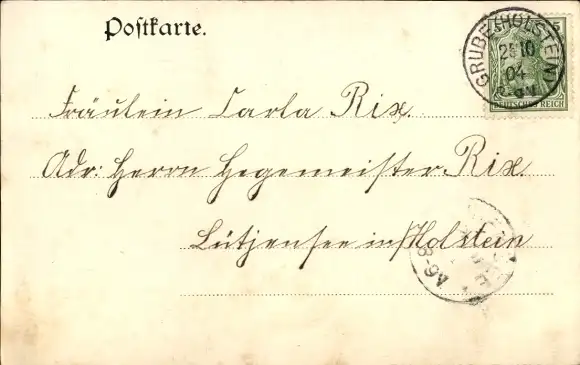 Postkarte.
GRUBE (HOLSTEIN)
5
10
04
DEUTSCHES REICH
Fräulein Carla Rix.
Adr: Herrn Hegemeister Rix
Lütjensee in Holstein